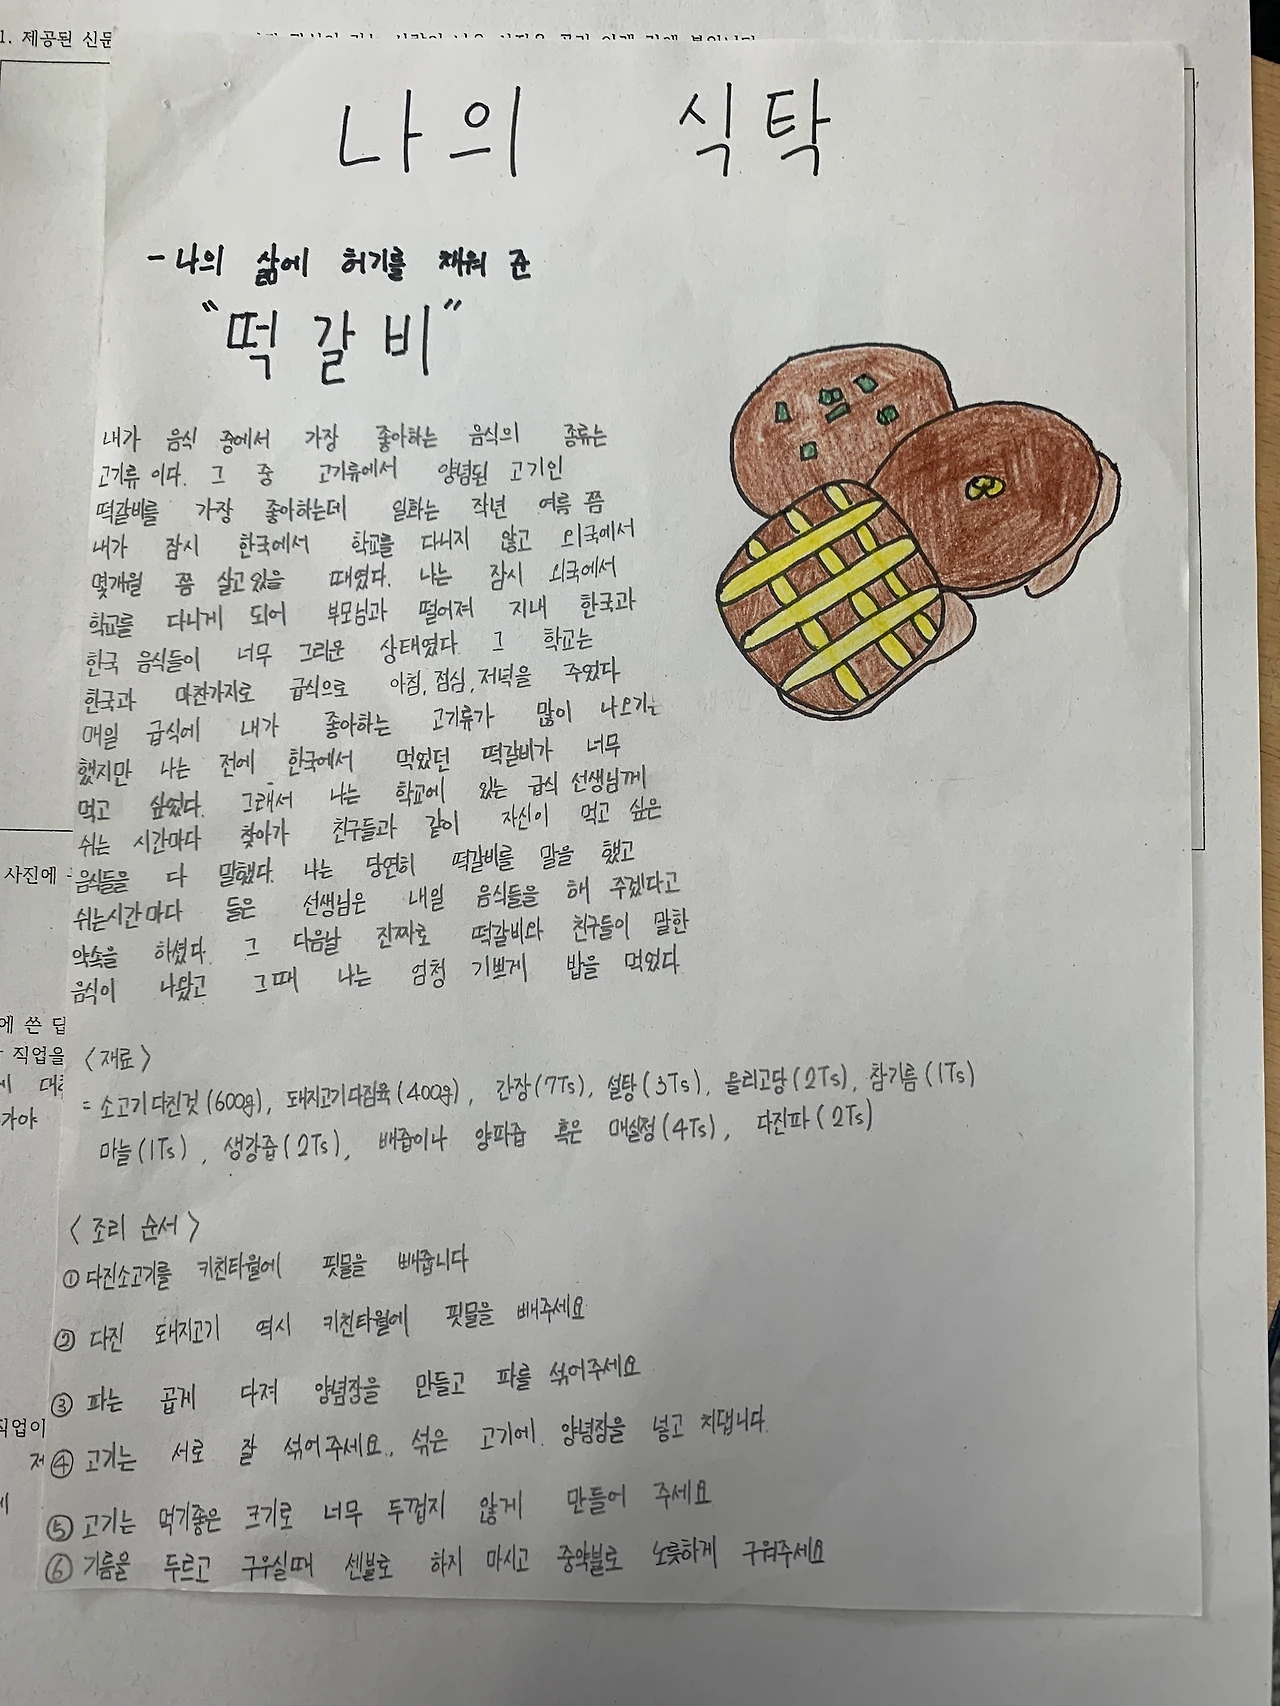 1. 제공된 신문
나의 식탁
- 나의 삶에 허기를 채워 준
"떡갈비"
내가 음식 중에서 가장 좋아하는 음식의 종류는
고기류 이다. 그 중 고기류에서 양념된 고기인
떡갈비를 가장 좋아하는데 일화는 작년 여름 쯤
내가 잠시 한국에서 학교를 다니지 않고 외국에서
몇개월 쯤 살고있을 때였다. 나는 잠시 외국에서
학교를 다니게 되어 부모님과 떨어져 지내 한국과
한국 음식들이 너무 그리운 상태였다. 그 학교는
한국과 마찬가지로 급식으로 아침, 점심, 저녁을 주었다
매일 급식에 내가 좋아하는 고기류가 많이 나오기는
했지만 나는 전에 한국에서 먹었던 떡갈비가 너무
먹고 싶었다. 그래서 나는 학교에 있는 급식 선생님께
쉬는 시간마다 찾아가 친구들과 같이 자신이 먹고 싶은
음식들을 다 말했다. 나는 당연히 떡갈비를 말을 했고
쉬는시간 마다 들은 선생님은 내일 음식들을 해 주겠다고
약속을 하셨다. 그 다음날 진짜로 떡갈비와 친구들이 말한
음식이 나왔고 그때 나는 엄청 기쁘게 밥을 먹었다.
사진에
에 쓴 답
직업을
가야
직업이
<재료>
= 소고기다진것(600g), 돼지고기다짐육(400g), 간장(7Ts), 설탕(3Ts), 올리고당(2Ts), 참기름(1Ts)
마늘(1Ts), 생강즙(2Ts), 배즙이나 양파즙 혹은 매실청(4Ts), 다진파(2Ts)
<조리 순서>
① 다진소고기를 키친타월에 핏물을 빼줍니다
② 다진 돼지고기 역시 키친타월에 핏물을 빼주세요
③ 파는 곱게 다져 양념장을 만들고 파를 섞어주세요
④ 고기는 서로 잘 섞어주세요., 섞은 고기에 양념장을 넣고 치댑니다.
⑤ 고기는 먹기좋은 크기로 너무 두껍지 않게 만들어 주세요
⑥ 기름을 두르고 구우실때 센불로 하지 마시고 중약불로 노릇하게 구워주세요